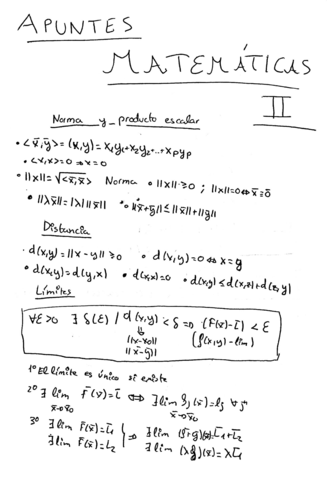 APUNTES
MATEMÁTICAS
II
Norma y producto escalar
• <x̄,ȳ> = (x,y) = x₁y₁+x₂y₂+...+xₚyₚ
• <x,x> = 0 ⇒ x=0
• ||x|| = √<x̄,x̄> Norma • ||x|| ≥ 0 ; ||x||=0 ⇔ x̄=0̄
• ||λx̄|| = |λ| ||x̄|| • ||x̄+ȳ|| ≤ ||x̄||+||ȳ||
Distancia
• d(x,y) = ||x-y|| ≥ 0 • d(x,y)=0 ⇔ x=y
• d(x,y) = d(y,x) • d(x,x)=0 • d(x,y) ≤ d(x,z)+d(z,y)
Límites
∀ε>0 ∃ δ(ε) / d(x,y) < δ ⇒ (F(x̄)-L̄) < ε
||x-x₀|| (f(x,y)-lim)
||x̄-ȳ||
1º El límite es único si existe
2º ∃ lim F̄(x̄) = L̄ ⇔ ∃ lim fⱼ(x̄) = lⱼ ∀j
x̄→x̄₀ x̄→x̄₀
3º ∃ lim F̄(x̄) = L̄₁ ⇒ ∃ lim (f+g)(x̄) = L̄₁+L̄₂
∃ lim F̄(x̄) = L₂ ∃ lim (λf)(x̄) = λL̄